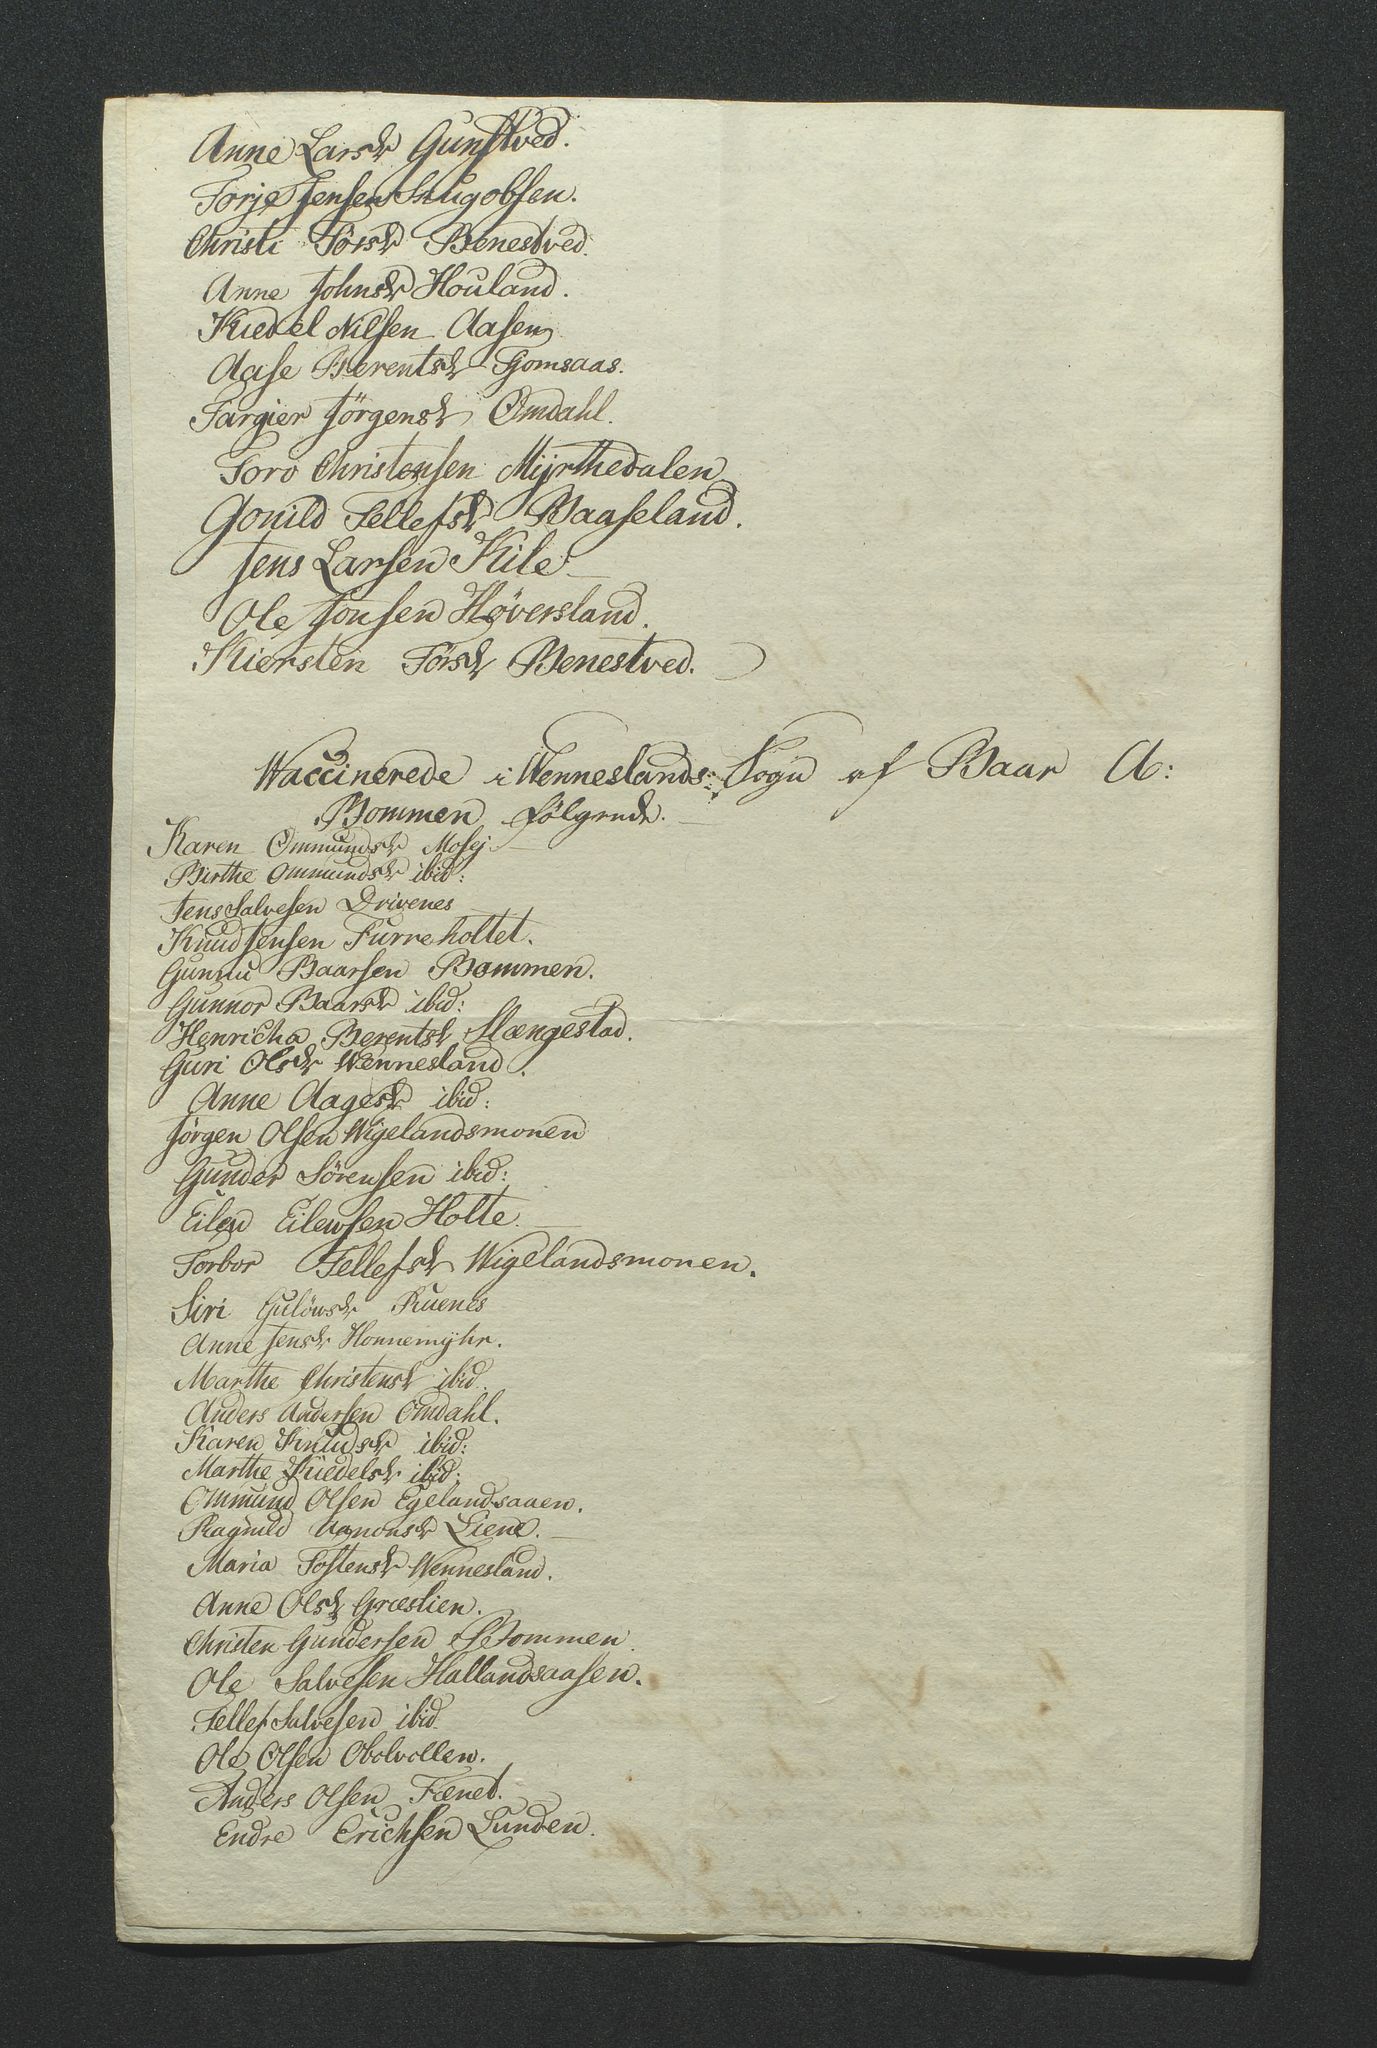 Anne Larsd Gunstved.
Torje Jensen Skugobsen.
Christi Törsd Benestved.
Anne Johnsd Houland.
Kiedel Nilsen Aasen
Aase Berentsd Fjomsaas.
Targier Jörgensd Omdahl.
Toro Christensen Myrthedalen
Gonild Tellefsd Baaseland.
Jens Larsen Kile
Ole Jonsen Høversland.
Kiersten Törsd Benestved.
Waccinerede i Wenneslands: Sogn af Baar A:
Bommen følgende.
Karen Ommundsd Mosej
Birthe Ommundsd ibid:
Jens Salvesen Drivenes
Knud Jensen Furreholtet.
Gunnu Baarsen Bommen.
Gunnor Baarsd ibid:
Henricha Berentsd Slængestad.
Guri Olsd Wennesland.
Anne Aagesd ibid:
Jörgen Olsen Wigelandsmonen
Gunder Sörensen ibid:
Eilev Eilewsen Holte.
Torbor Tellefsd Wigelandsmonen.
Siri Gulöwsd Ruenes
Anne Jensd Honnemyhr.
Marthe Christensd ibid.
Anders Andersen Omdahl.
Karen Knudsd ibid:
Marthe Kiedelsd ibid:
Ommund Olsen Egelandsaaen.
Ragnild Aanonsd Liene.
Maria Tostensd Wennesland.
Anne Olsd Græslien.
Christen Gundersen Bommen.
Ole Salvesen Hallandsaasen.
Tellef Salvesen ibid.
Ole Olsen Obolvollen.
Anders Olsen Fænet.
Endre Erichsen Lunden.